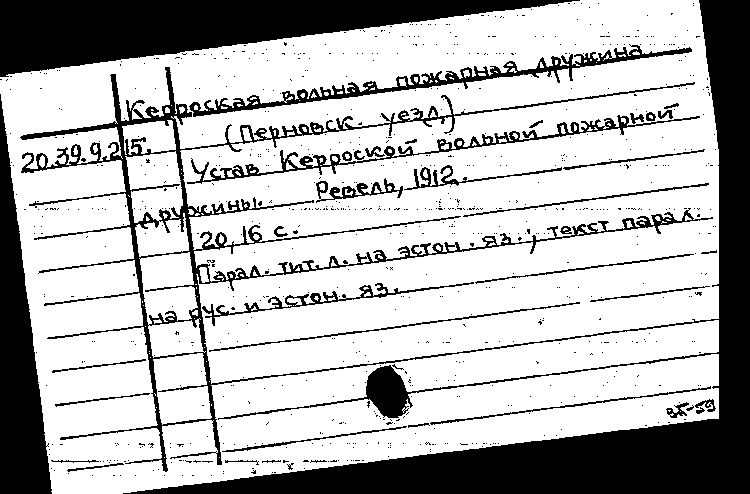 Керроская вольная пожарная дружина
(Перновск. уезд.)
20.39.9.215.
Устав Керроской вольной пожарной
дружины. Ревель, 1912.
20, 16 с.
Парал. тит. л. на эстон. яз.; текст парал.
на рус. и эстон. яз.